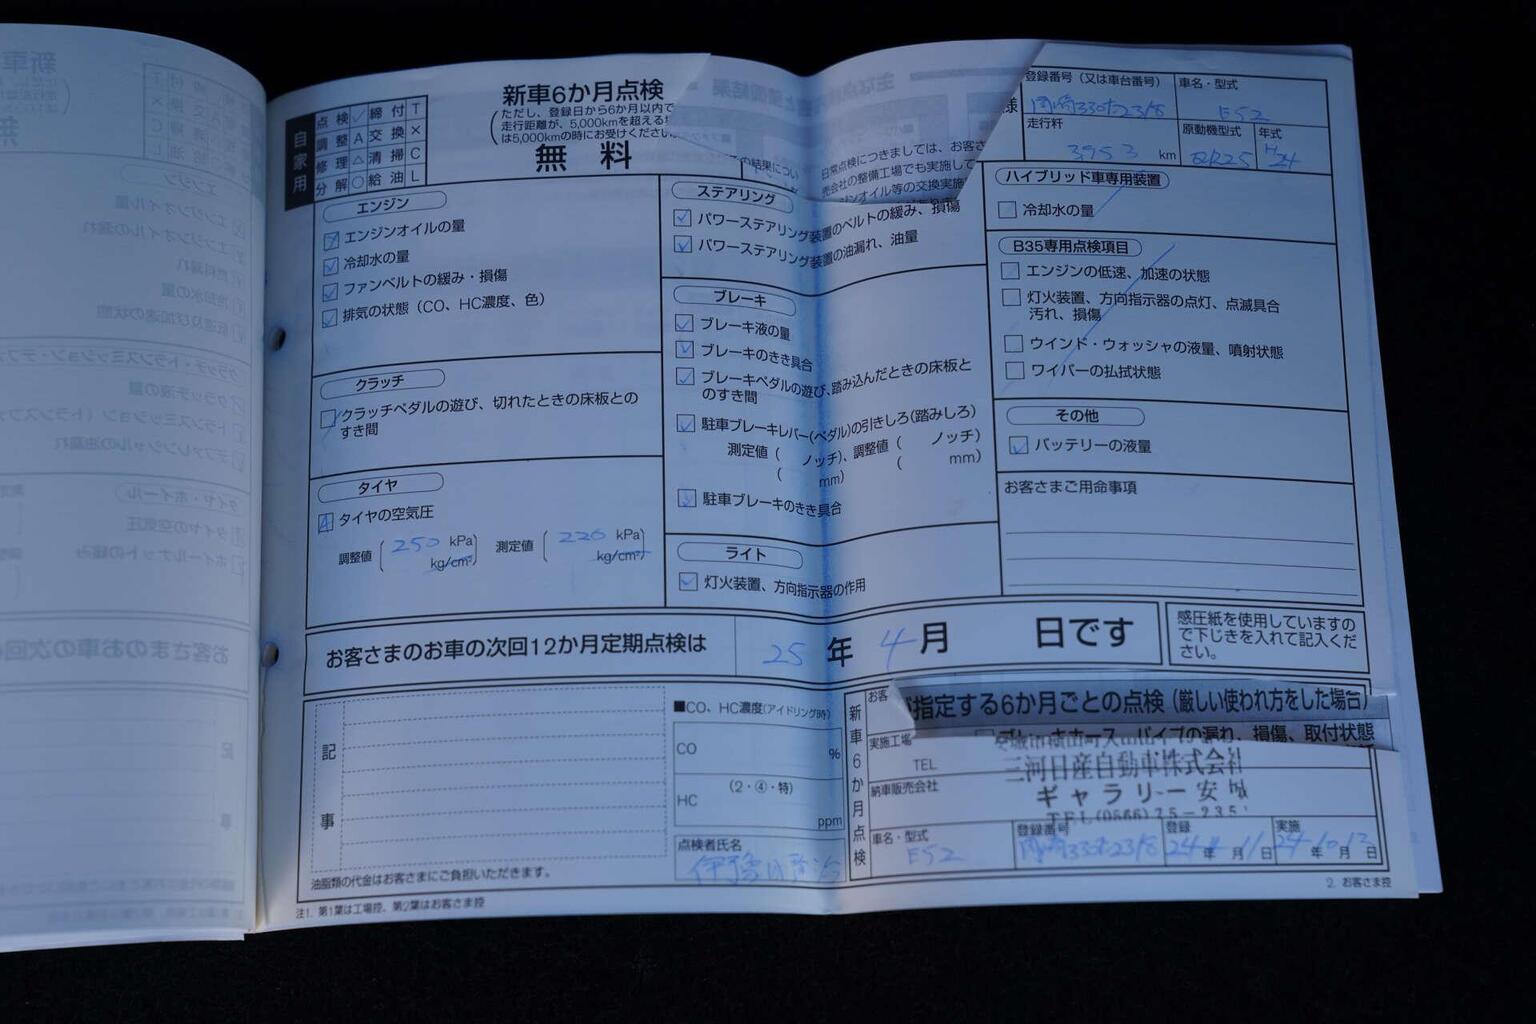 自家用
点検 ✓ 締付 T
調整 A 交換 ×
修理 △ 清掃 C
分解 ○ 給油 L
新車6か月点検
(ただし、登録日から6か月以内で
走行距離が、5,000kmを超える
は5,000kmの時にお受けください
無料
の結果につい
日常点検につきましては、お客さ
売会社の整備工場でも実施して
ンオイル等の交換実施
様
登録番号(又は車台番号)
岡崎330 2318
車名・型式
E52
走行粁
3953 km
原動機型式
QR25
年式
H24
エンジン
エンジンオイルの量
冷却水の量
ファンベルトの緩み・損傷
排気の状態(CO、HC濃度、色)
クラッチ
クラッチペダルの遊び、切れたときの床板との
すき間
タイヤ
A タイヤの空気圧
調整値 (250 kPa kg/cm²) 測定値 (220 kPa kg/cm²)
ステアリング
パワーステアリング装置のベルトの緩み、損傷
パワーステアリング装置の油漏れ、油量
ブレーキ
ブレーキ液の量
ブレーキのきき具合
ブレーキペダルの遊び、踏み込んだときの床板と
のすき間
駐車ブレーキレバー(ペダル)の引きしろ(踏みしろ)
測定値( ノッチ)、調整値( ノッチ)
( mm) ( mm)
駐車ブレーキのきき具合
ライト
灯火装置、方向指示器の作用
ハイブリッド車専用装置
冷却水の量
B35専用点検項目
エンジンの低速、加速の状態
灯火装置、方向指示器の点灯、点滅具合
汚れ、損傷
ウインド・ウォッシャの液量、噴射状態
ワイパーの払拭状態
その他
バッテリーの液量
お客さまご用命事項
お客さまのお車の次回12か月定期点検は 25年 4月 日です
感圧紙を使用していますの
で下じきを入れて記入くだ
さい。
記事
油脂類の代金はお客さまにご負担いただきます。
■CO、HC濃度(アイドリング時)
CO %
(2・④・特)
HC ppm
点検者氏名
新車6か月点検
お客
指定する6か月ごとの点検(厳しい使われ方をした場合)
の漏れ、損傷、取付状態
実施工場
TEL
三河日産自動車株式会社
納車販売会社
ギャラリー安城
車名・型式
E52
登録番号
岡崎330 2318
登録
24年 月11日
実施
24年10月12日
注1. 第1葉は工場控、第2葉はお客さま控
2. お客さま控